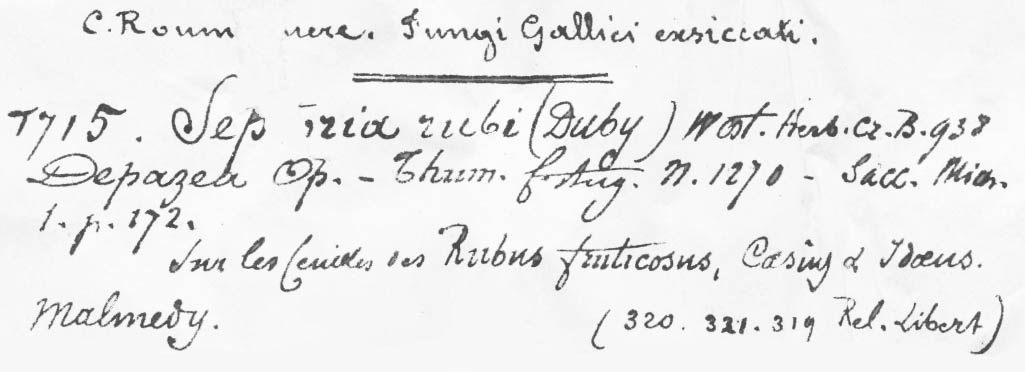 C. Roum uere. Fungi Gallici exsiccati.
1715. Sep oria rubi (Duby) West. Herb. Cr. B. 938
Depazea Op. - Thum. f. Aug. N. 1270 - Sacc. Mich.
1. p. 172.
Sur les feuilles des Rubus fruticosus, Cæsius & Idæus.
Malmedy. (320. 321. 319 Rel. Libert)